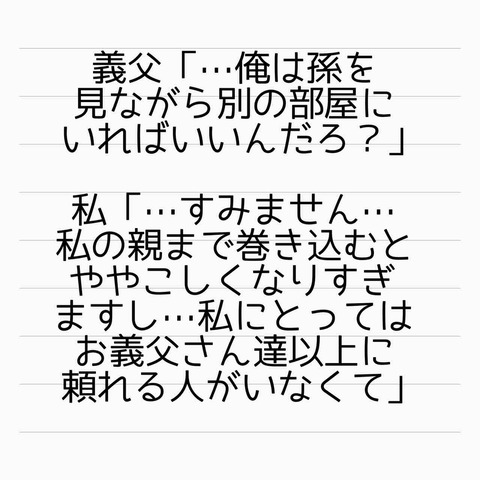 義父「…俺は孫を
見ながら別の部屋に
いればいいんだろ？」
私「…すみません…
私の親まで巻き込むと
ややこしくなりすぎ
ますし…私にとっては
お義父さん達以上に
頼れる人がいなくて」